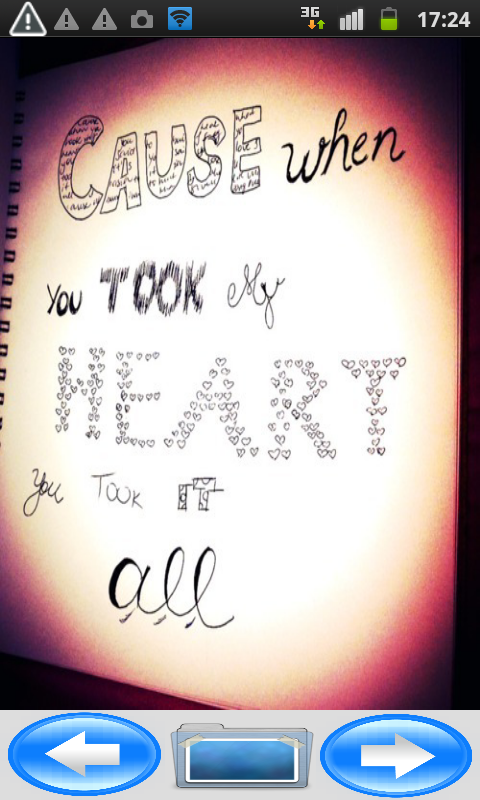 3G 17:24
CAUSE when
You TOOK My
HEART
You Took IT
all